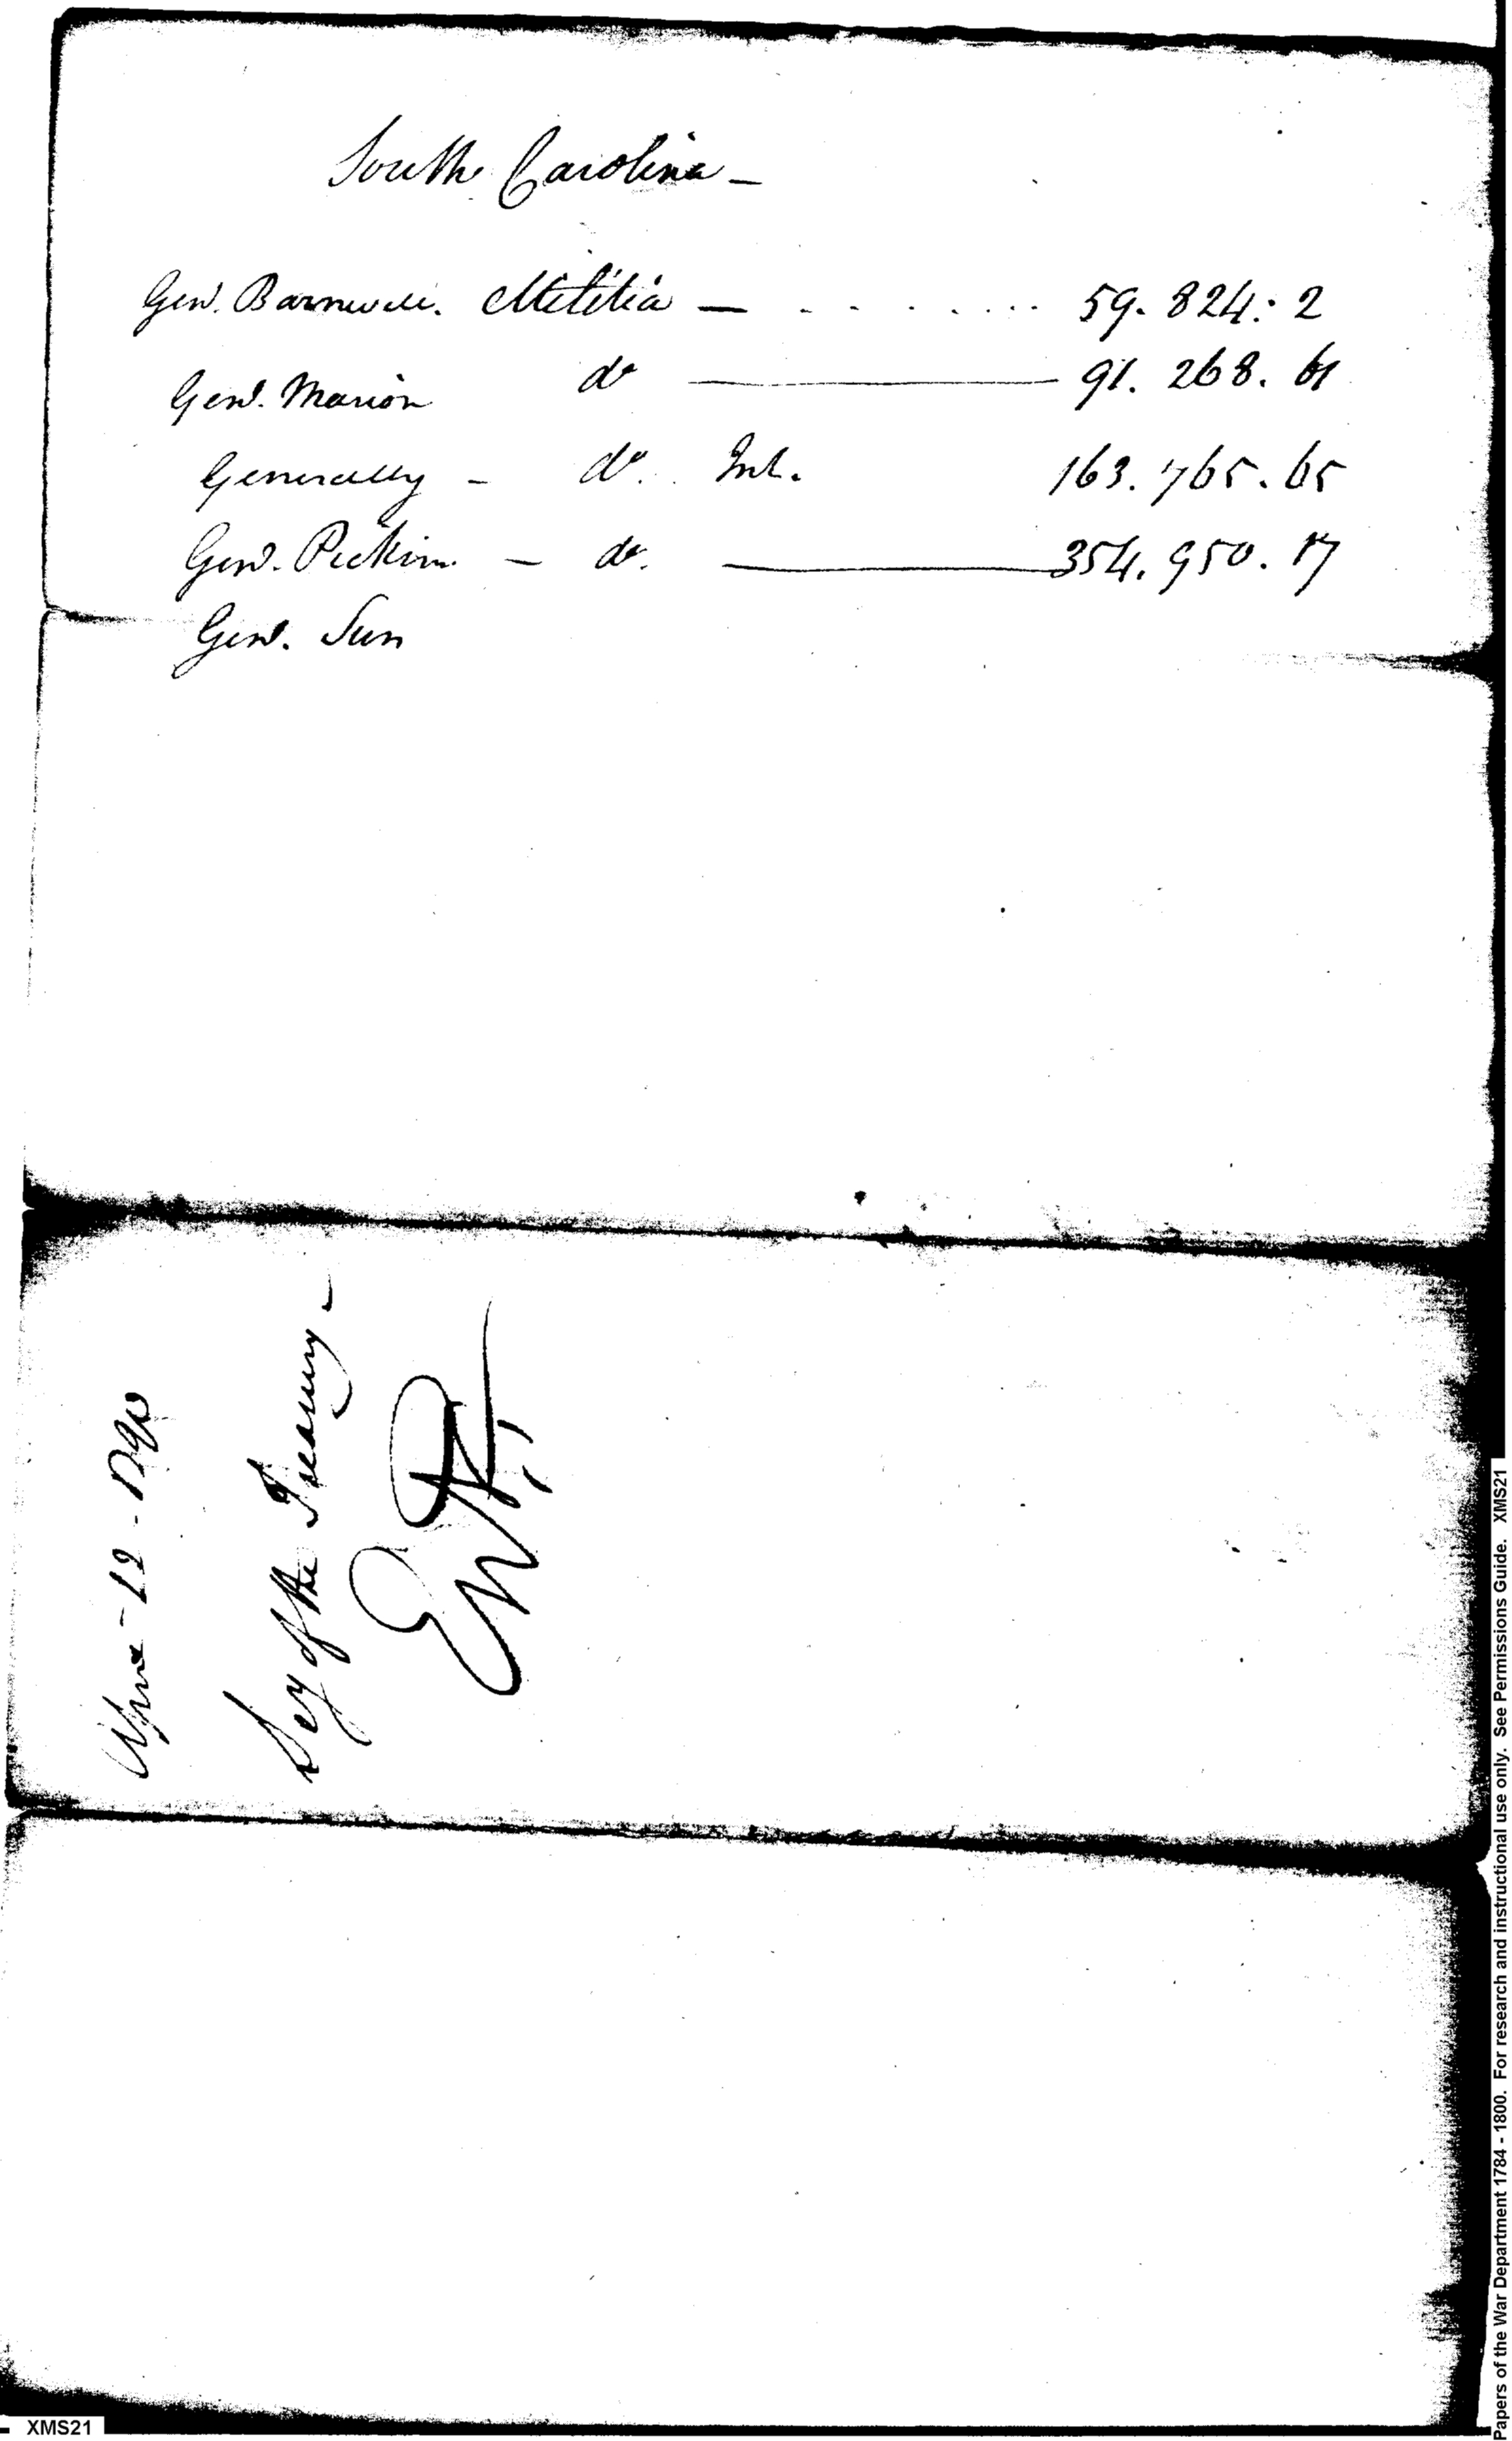 South Carolina -
Genl. Barnwell. Militia - . . . . . . . . 59. 824. 2
Genl. Marion do - 91. 268. 61
Generally - do. Int. 163. 765. 65
Genl. Pickins - do. - 354. 950. 17
Genl. Sum
Secy of the Treasury -
Papers of the War Department 1784 - 1800. For research and instructional use only. See Permissions Guide. XMS21
XMS21